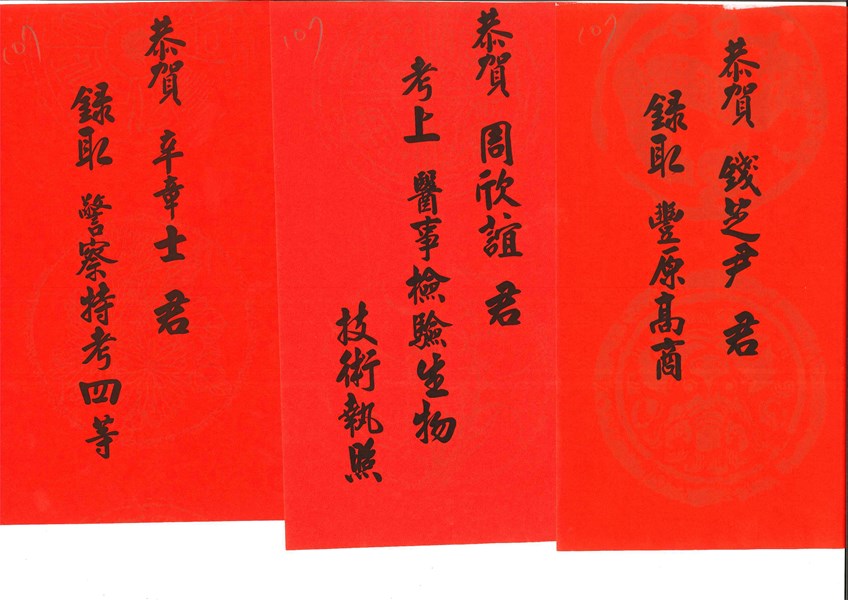 恭賀 錢芝尹 君
錄取 豐原高商
107
恭賀 周欣誼 君
考上 醫事檢驗生物
技術執照
107
恭賀 辛章士 君
錄取 警察特考四等
107